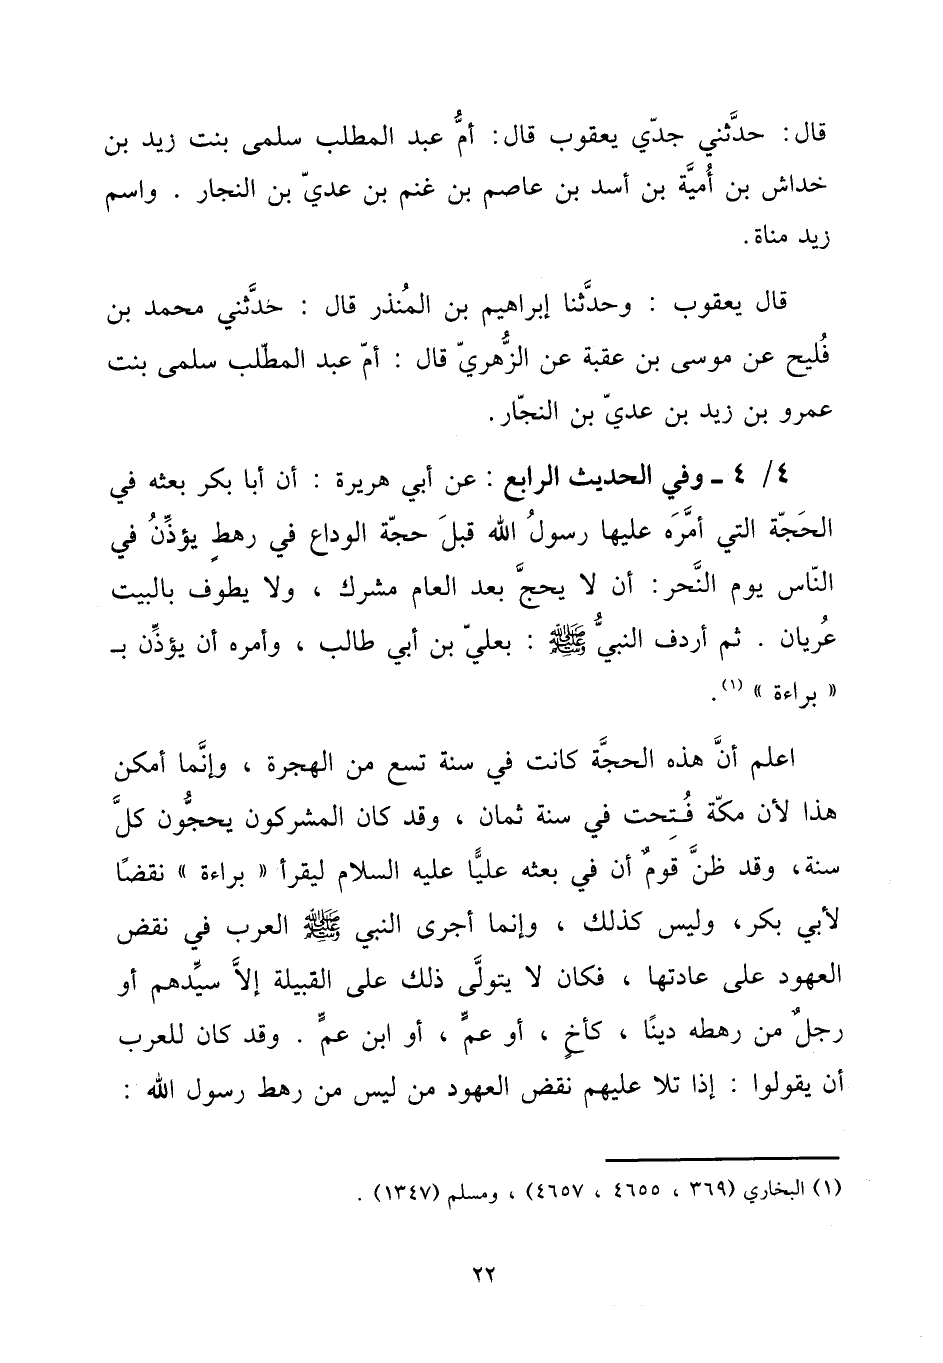 قال: حدَّثني جدّي يعقوب قال: أمُّ عبد المطلب سلمى بنت زيد بن
خداش بن أُميَّة بن أسد بن عاصم بن غنم بن عديّ بن النجار . واسم
زيد مناة.
قال يعقوب : وحدَّثنا إبراهيم بن المُنذر قال : حَدَّثني محمد بن
فُليح عن موسى بن عقبة عن الزُّهريّ قال : أمّ عبد المطّلب سلمى بنت
عمرو بن زيد بن عديّ بن النجّار.
٤/ ٤ ـ وفي الحديث الرابع : عن أبي هريرة : أن أبا بكر بعثه في
الحَجّة التي أمَّرَه عليها رسولُ الله قبلَ حجّة الوداع في رهطٍ يؤذِّنُ في
النّاس يوم النَّحر: أن لا يحجَّ بعد العام مشرك ، ولا يطوف بالبيت
عُريان . ثم أردف النبيُّ ﷺ : بعليّ بن أبي طالب ، وأمره أن يؤذِّن بـ
« براءة » (١).
اعلم أنَّ هذه الحجَّة كانت في سنة تسع من الهجرة ، وإنَّما أمكن
هذا لأن مكّة فُتِحت في سنة ثمان ، وقد كان المشركون يحجُّون كلَّ
سنة، وقد ظنَّ قومٌ أن في بعثه عليًّا عليه السلام ليقرأ « براءة » نقضًا
لأبي بكر، وليس كذلك ، وإنما أجرى النبي ﷺ العرب في نقض
العهود على عادتها ، فكان لا يتولَّى ذلك على القبيلة إلاَّ سيِّدهم أو
رجلٌ من رهطه دينًا ، كأخٍ ، أو عمٍّ ، أو ابن عمٍّ . وقد كان للعرب
أن يقولوا : إذا تلا عليهم نقض العهود من ليس من رهط رسول الله :
(١) البخاري (٣٦٩ ، ٤٦٥٥ ، ٤٦٥٧) ، ومسلم (١٣٤٧) .
٢٢